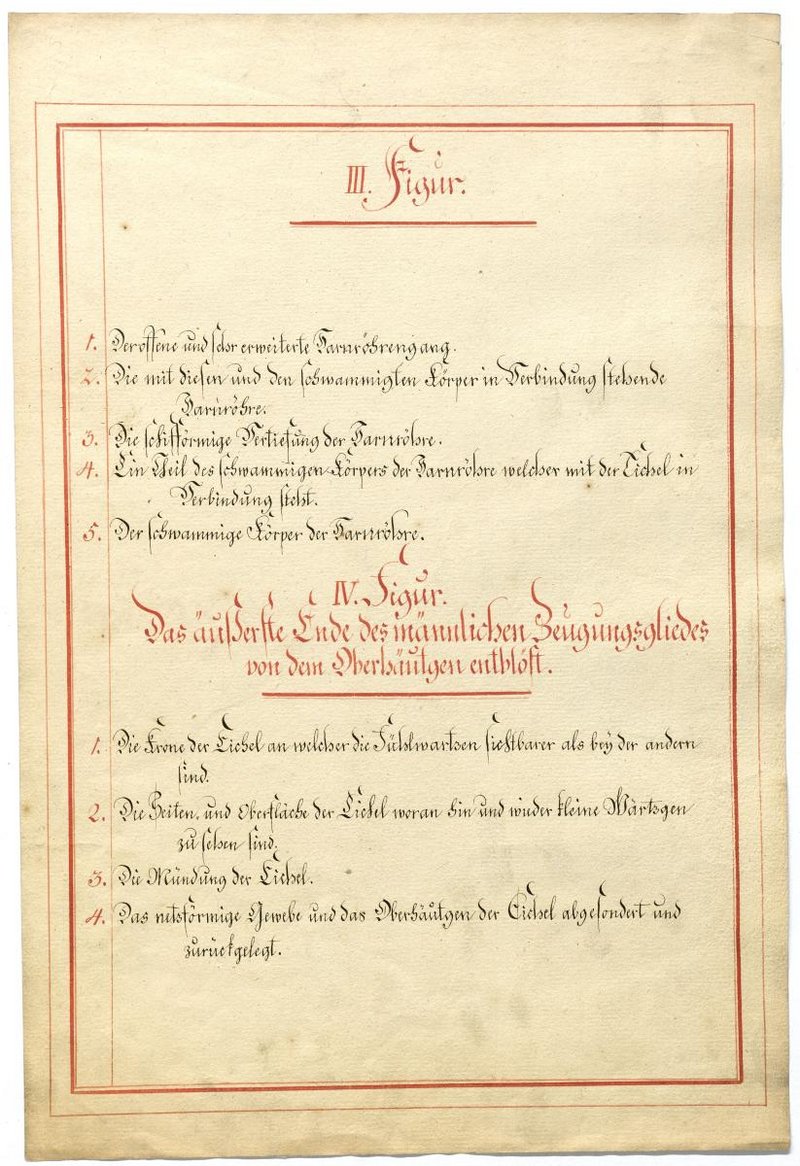 III. Figur.
1. Der offene und sehr erweiterte Harnröhrengang.
2. Die mit diesen und den schwammigten Körper in Verbindung stehende
Harnröhre.
3. Die schifförmige Vertiefung der Harnröhre.
4. Ein Theil des schwammigen Körpers der Harnröhre welcher mit der Eichel in
Verbindung steht.
5. Der schwammige Körper der Harnröhre.
IV. Figur.
Das äußerste Ende des männlichen Zeugungsgliedes
von dem Oberhäutgen entblöst.
1. Die Krone der Eichel an welcher die Fühlwartzen sichtbarer als bey der andern
sind.
2. Die Seiten und Oberfläche der Eichel woran hin und wieder kleine Wärtzgen
zu sehen sind.
3. Die Mündung der Eichel.
4. Das netzförmige Gewebe und das Oberhäutgen der Eichel abgesondert und
zurückgelegt.